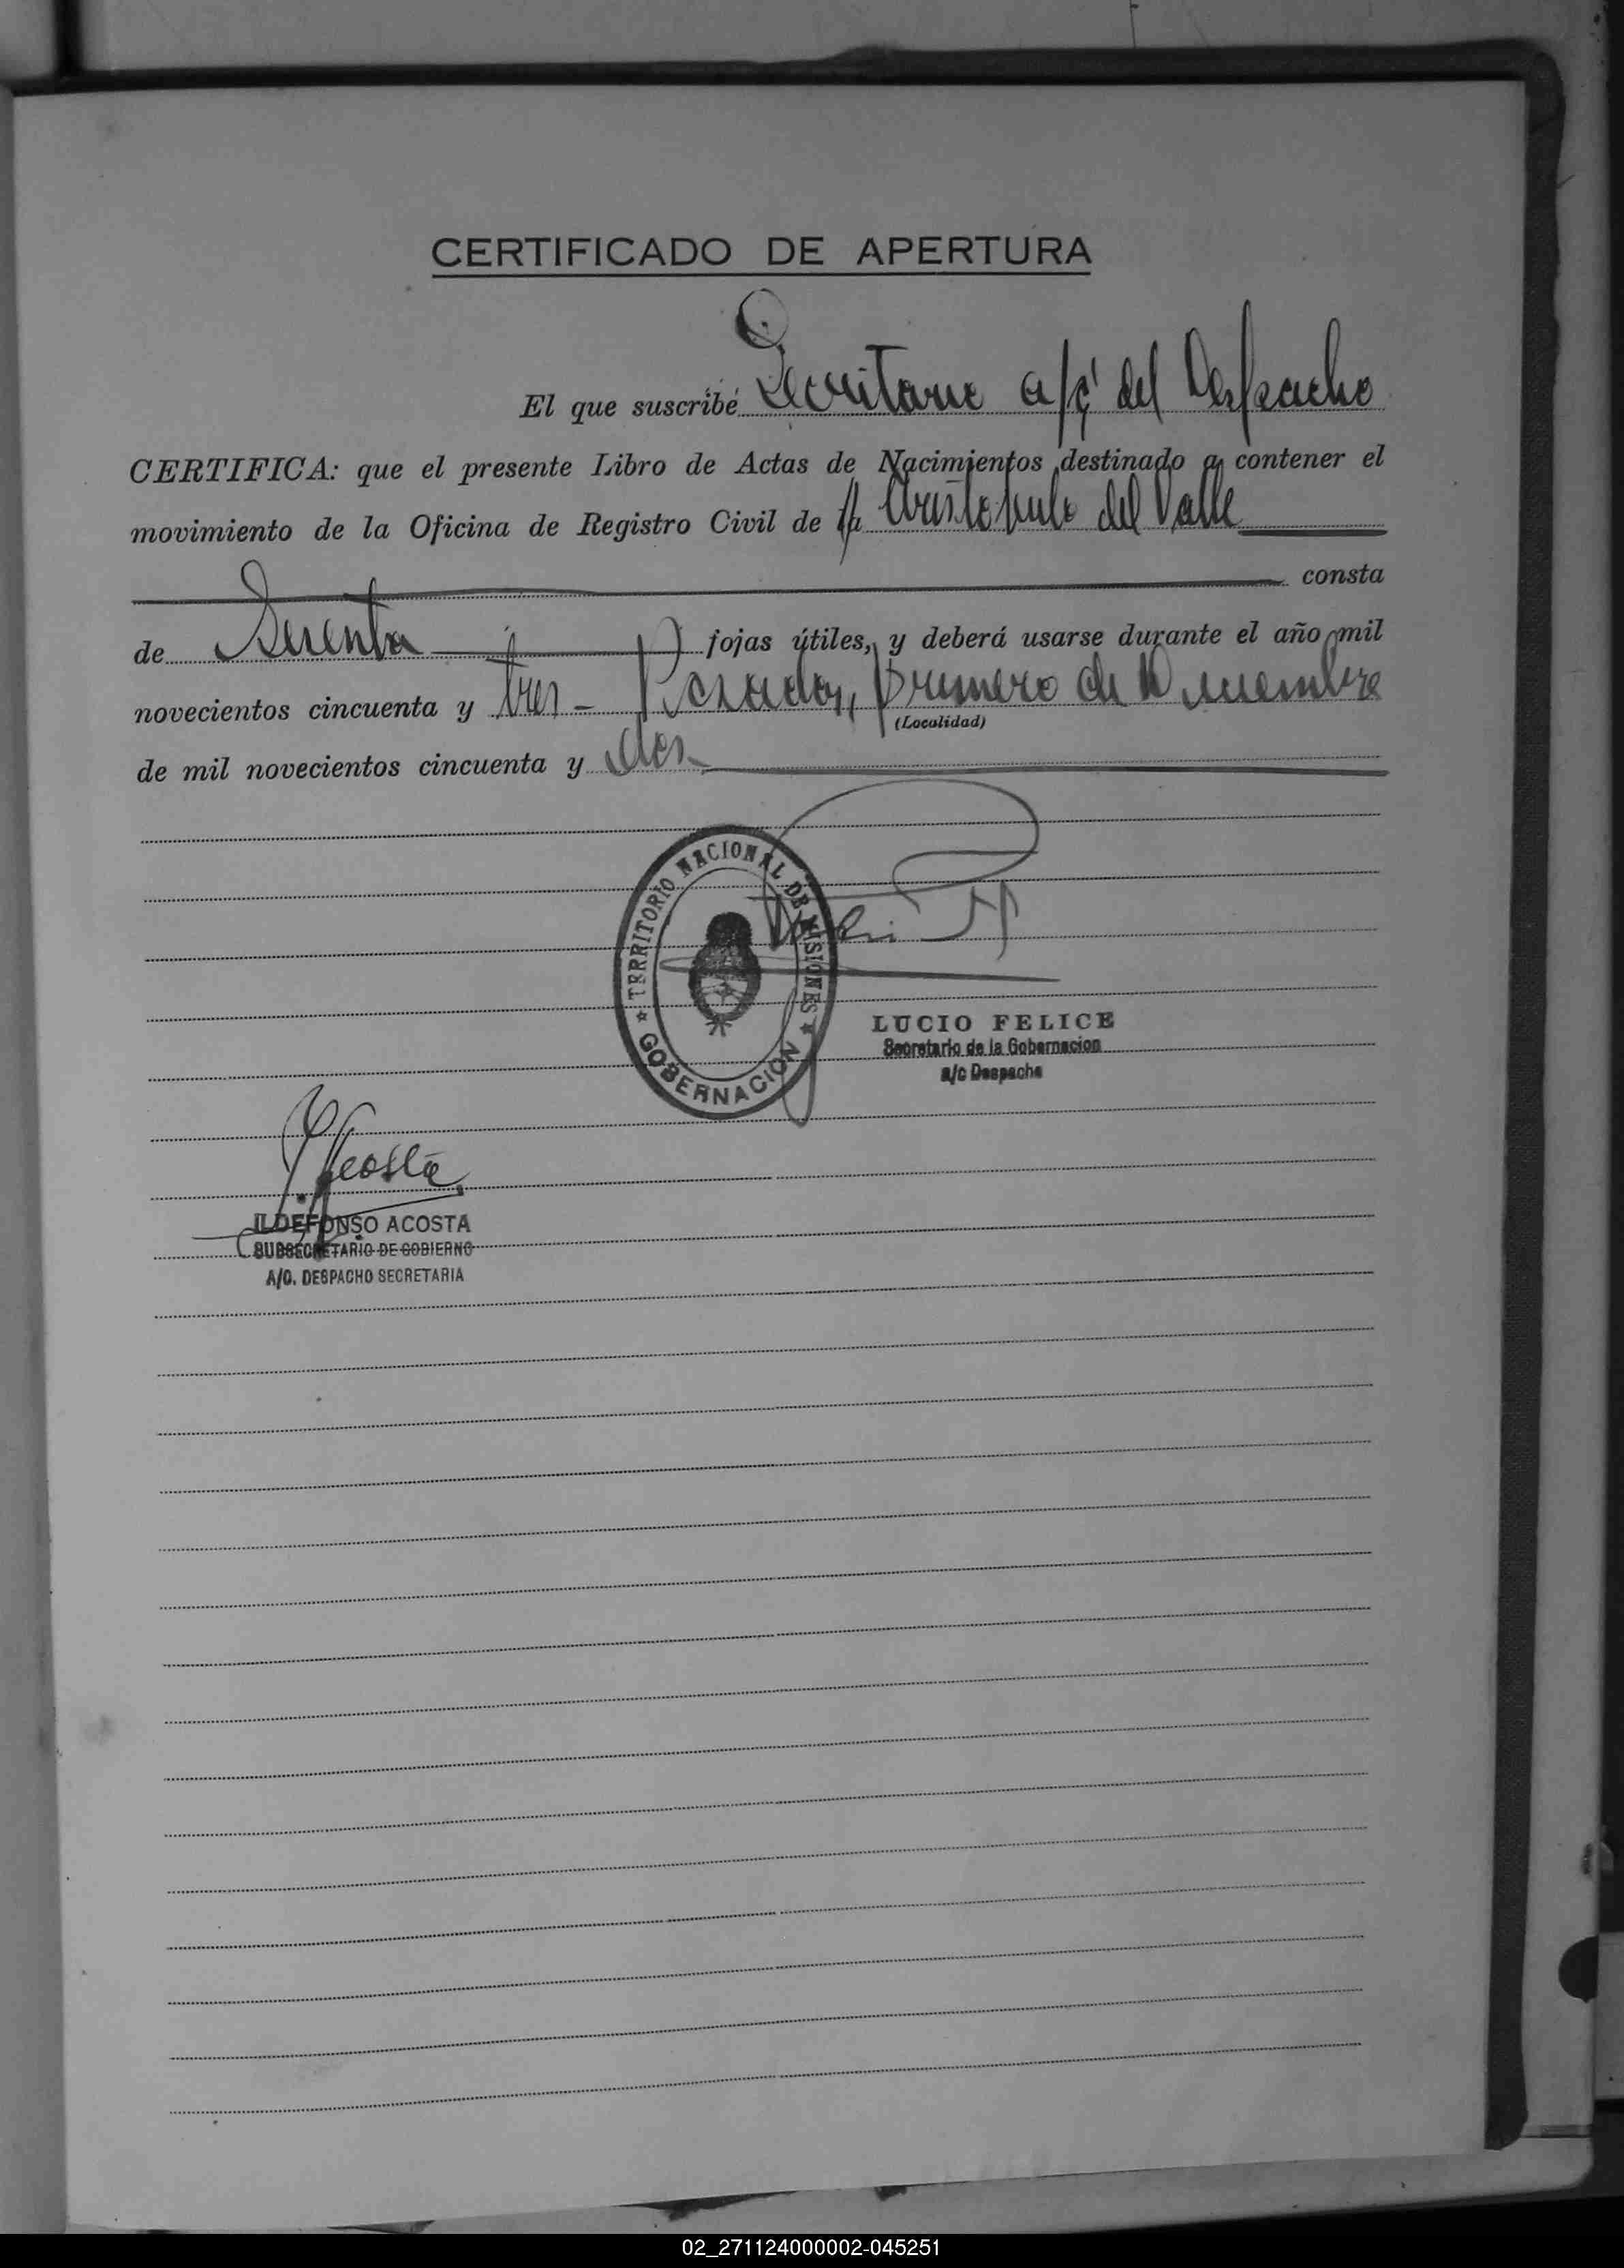 CERTIFICADO DE APERTURA
El que suscribe Secretario a/c del Despacho
CERTIFICA: que el presente Libro de Actas de Nacimientos destinado a contener el
movimiento de la Oficina de Registro Civil de Aristobulo del Valle
consta
de fojas útiles, y deberá usarse durante el año mil
novecientos cincuenta y tres - Posadas, primero de Diciembre
(Localidad)
de mil novecientos cincuenta y dos
TERRITORIO NACIONAL DE MISIONES
GOBERNACION
LUCIO FELICE
Secretario de la Gobernacion
a/c Despacho
Acosta
ILDEFONSO ACOSTA
SUBSECRETARIO DE GOBIERNO
A/C. DESPACHO SECRETARIA
02_271124000002-045251